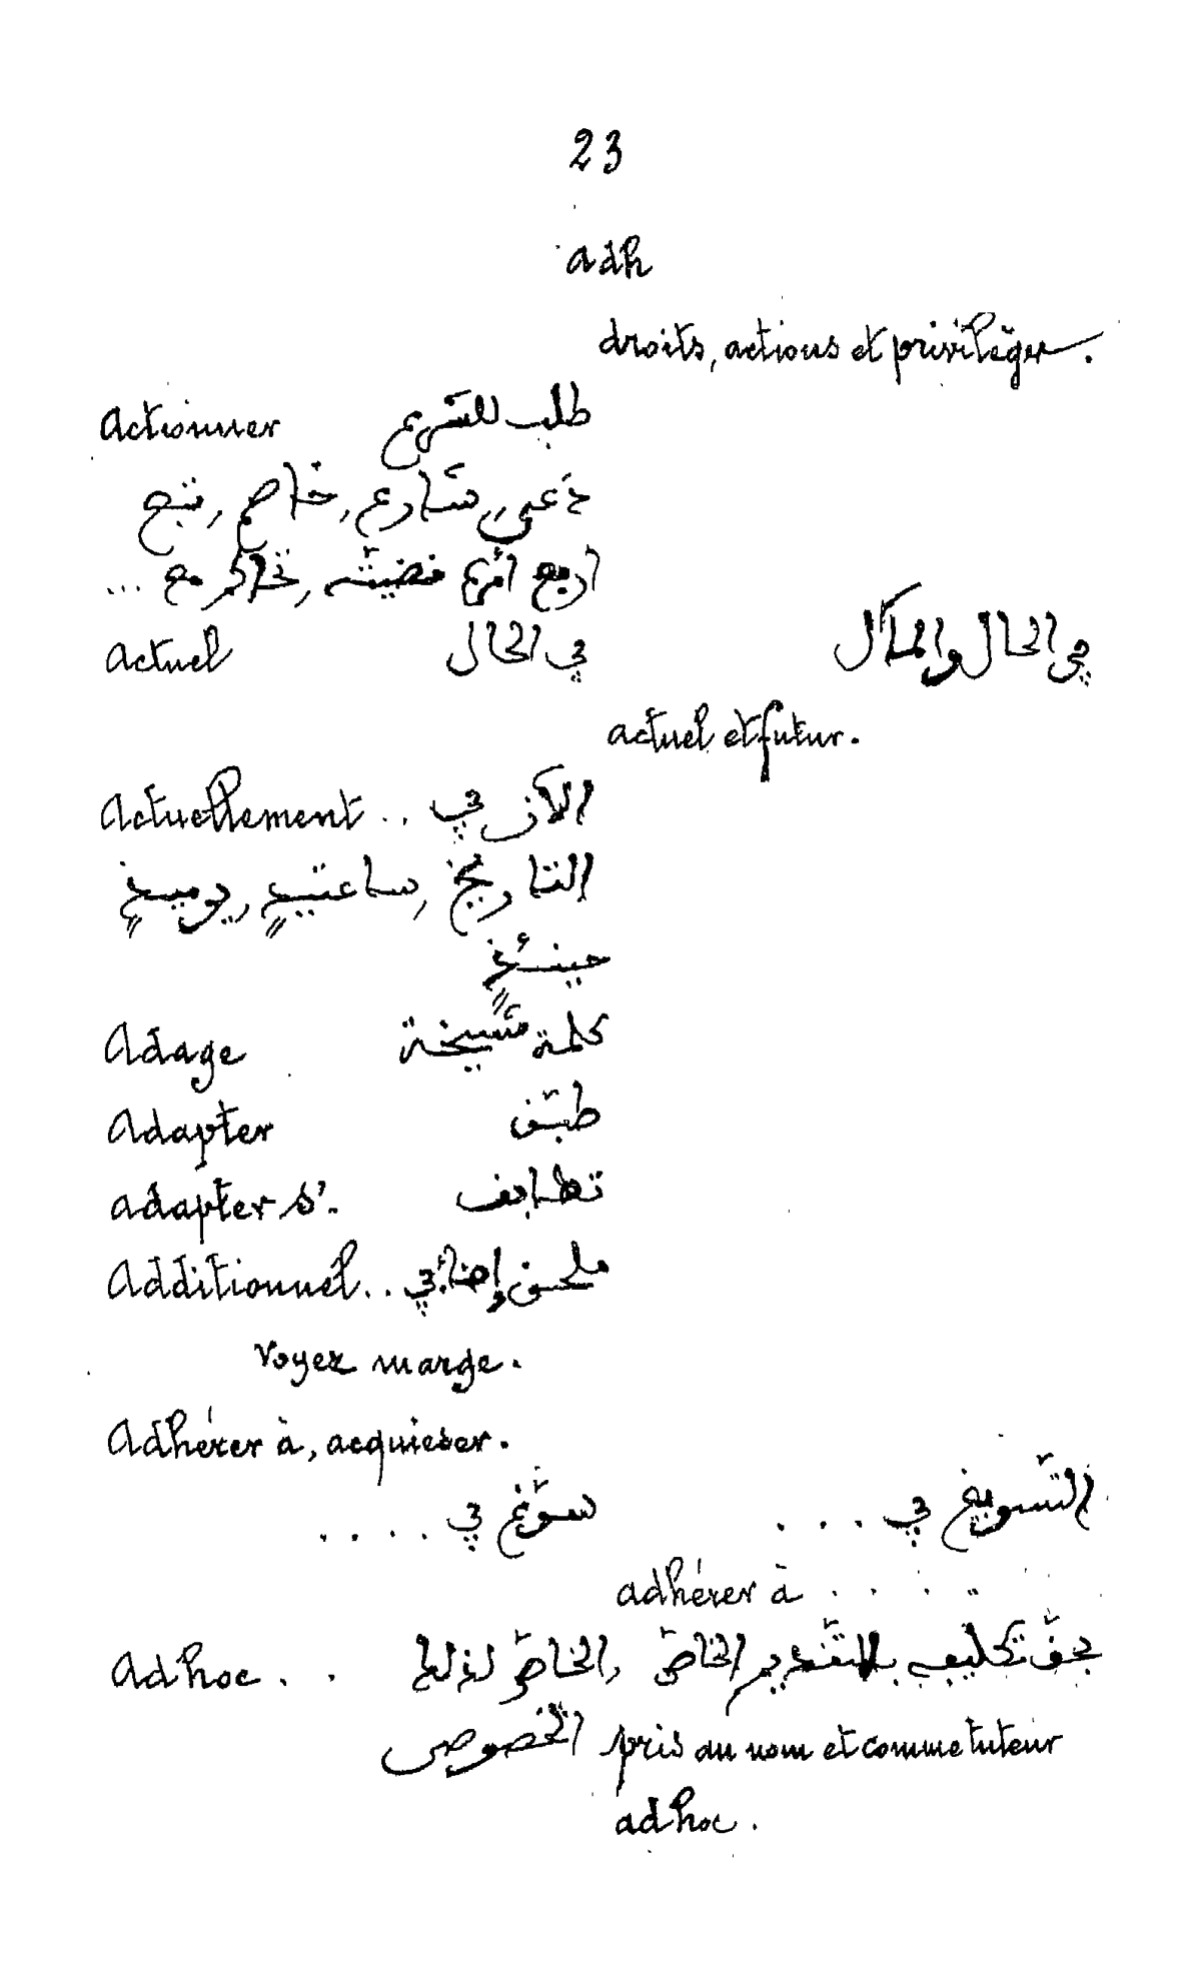 23
adh
droits, actions et privilèges.
Actionner طلب للشرع
دعى, شارع, خاصم, تبع
أربع أمره فضيته, تحاكم مع ...
Actuel في الحال في الحال والمآل
actuel et futur.
Actuellement .. الآن في
التاريخ, ساعتيذٍ, يوميذٍ
حينئذٍ
Adage كلمة مشيخة
Adapter طبّق
adapter s'. تطابق
Additionnel .. ملحق إضافي
Voyez marge.
Adhérer à, acquiescer.
سوّغ في .... التسويغ في ...
adhérer à ....
Adhoc .. الخاصّ لذلك, بحقّ تكليفه بالتقديم الخاصّ
الخصوصي pris au nom et comme tuteur
adhoc.